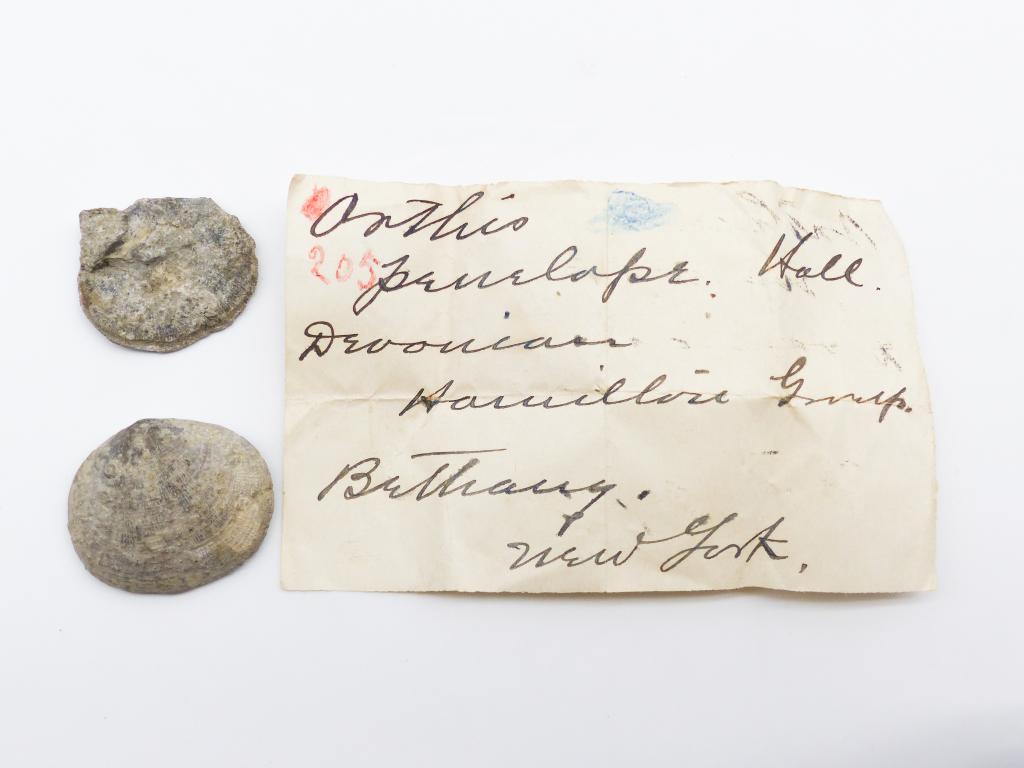 Orthis
205 penelope. Hall.
Devonian
Hamilton Group.
Bethany.
New York.